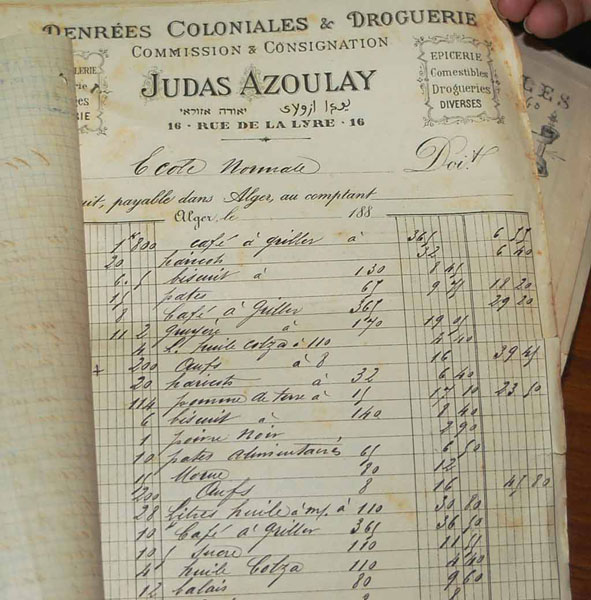 DENRÉES COLONIALES & DROGUERIE
COMMISSION & CONSIGNATION
JUDAS AZOULAY
יאודה אזוראי
16 · RUE DE LA LYRE · 16
EPICERIE
Comestibles
Drogueries
DIVERSES
Ecole Normale Doit
payable dans Alger, au comptant
Alger, le 188
1 K 800 café à griller à 365 6 57
20 haricots 32 6 40
6.5 biscuit à 130 8 45
15 pates 65 9 75 18 20
8 Café à Griller 365 29 20
11 2 gruyère à 170 19 05
4 L. huile Colza à 110 4 40
+ 200 Œufs à 8 16 39 45
20 haricots à 32 6 40
114 pomme de terre à 15 17 10 23 50
6 biscuit à 140 8 40
1 poivre Noir 2 90
10 pates alimentaires 65 6 50
15 Morue 80 12
200 Œufs 8 16 45 80
28 Litres huile à m. à 110 30 80
10 Café à Griller 365 36 50
10 Sucre 110 11 55
4 huile Colza 110 4 40
12 balais 80 9 60
Œufs 8